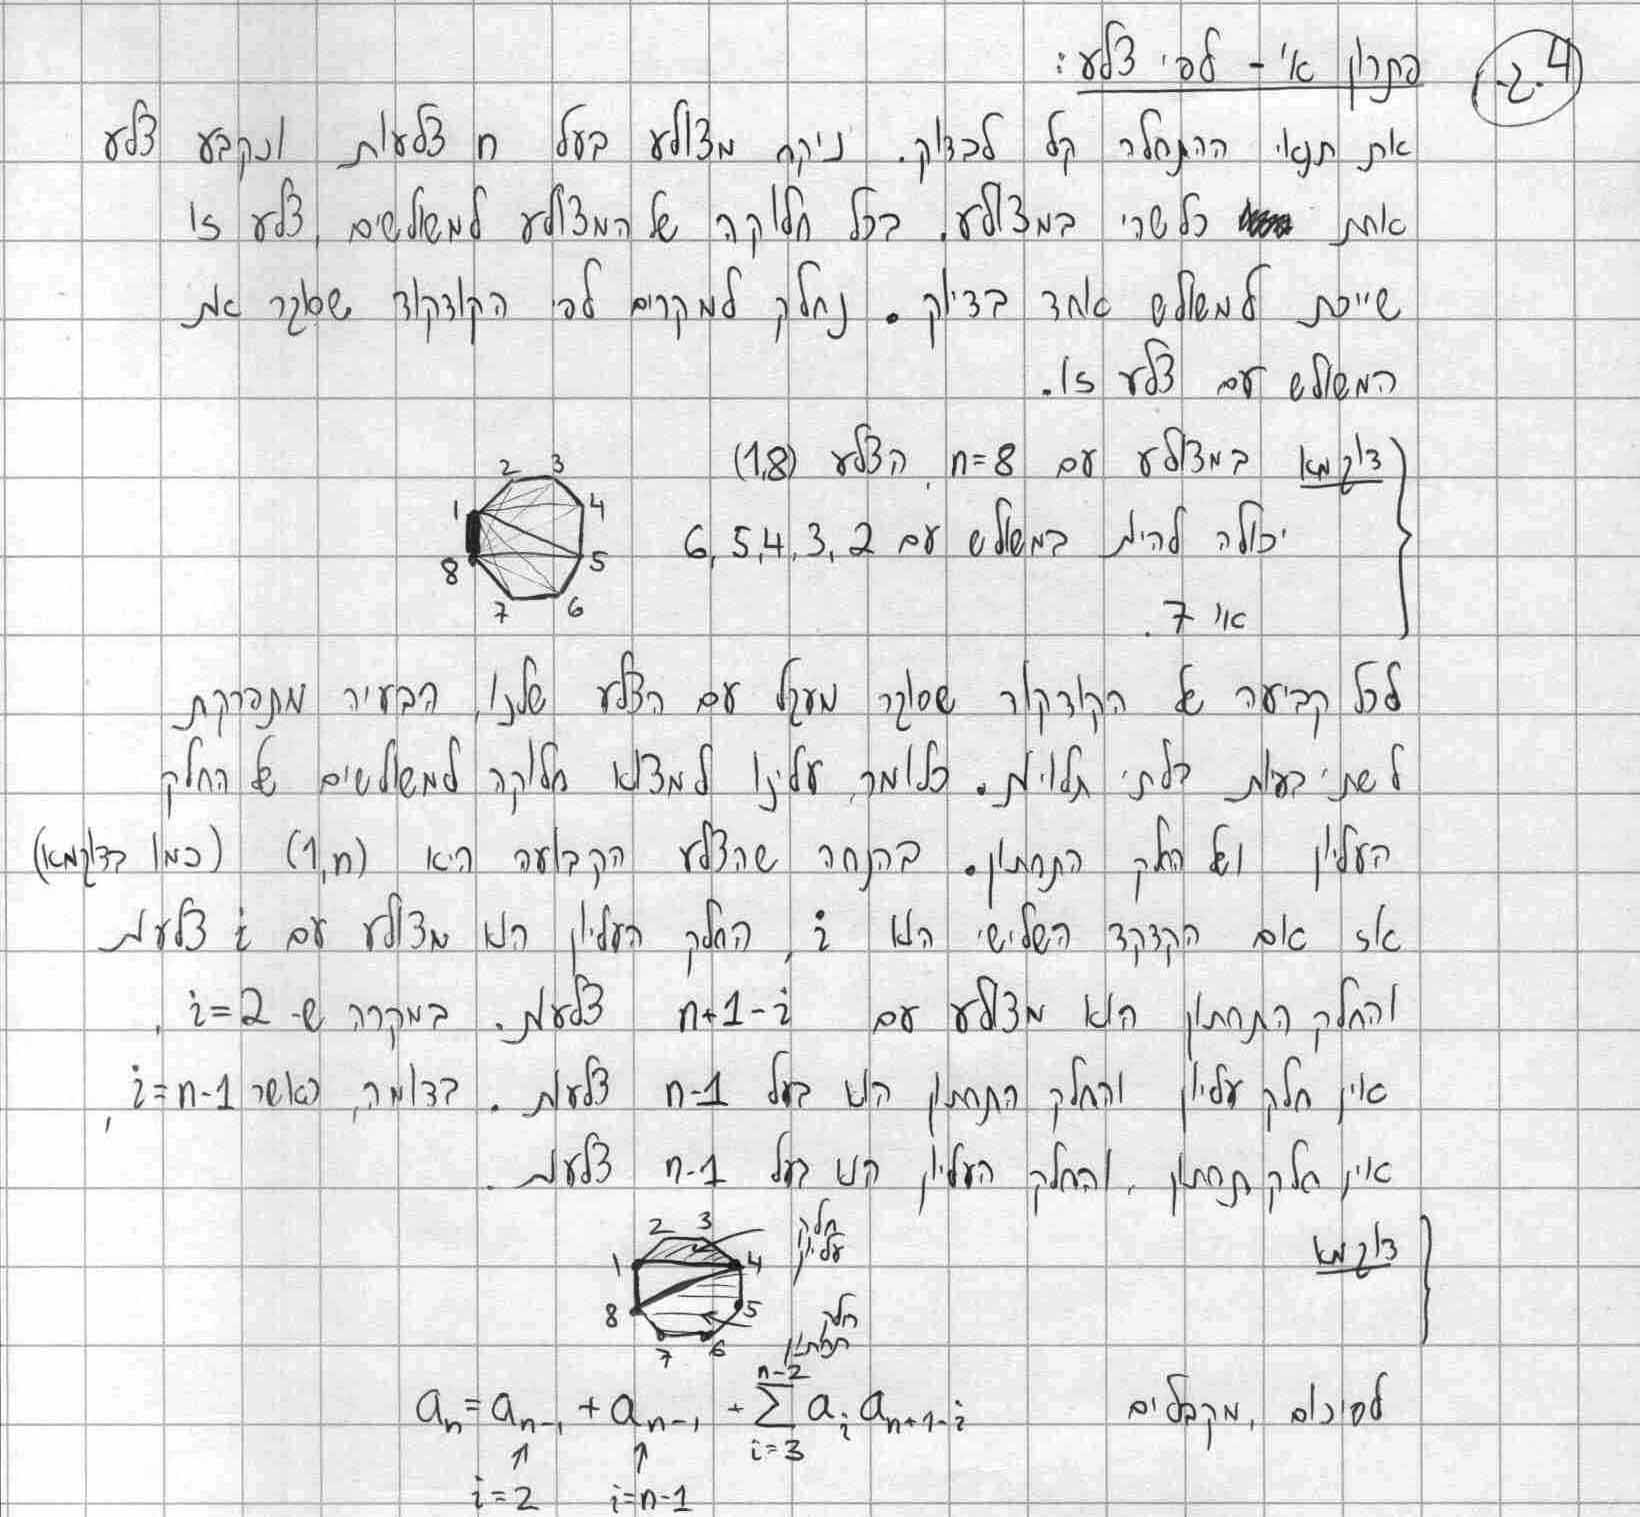 4.ג.
פתרון א' - לפי צלע:
את תנאי ההתחלה קל לבדוק. ניקח מצולע בעל n צלעות ונקבע צלע
אחת כלשהי במצולע. בכל חלוקה של המצולע למשולשים, צלע זו
שייכת למשולש אחד בדיוק. נחלק למקרים לפי הקודקוד שסוגר את
המשולש עם צלע זו.
דוגמא במצולע עם n=8, הצלע (1,8)
יכולה להיות במשולש עם 2, 3, 4, 5, 6
או 7.
2 3
1 4
8 5
7 6
לכל קביעה של הקודקוד שסוגר מעגל עם הצלע שלנו, הבעיה מתפרקת
לשתי בעיות בלתי תלויות. כלומר, עלינו למצוא חלוקה למשולשים של החלק
העליון ושל החלק התחתון. בהנחה שהצלע הקבועה היא (1,n) (כמו בדוגמא)
אז אם הקדקד השלישי הוא i, החלק העליון הוא מצולע עם i צלעות
והחלק התחתון הוא מצולע עם n+1-i צלעות. במקרה ש- i=2,
אין חלק עליון והחלק התחתון הוא בעל n-1 צלעות. בדומה, כאשר i=n-1,
אין חלק תחתון, והחלק העליון הוא בעל n-1 צלעות.
דוגמא
2 3 חלק עליון
1 4
8 5 חלק תחתון
7 6
לסיכום, מקבלים
a_n = a_{n-1} + a_{n-1} + \sum_{i=3}^{n-2} a_i a_{n+1-i}
↑ ↑
i=2 i=n-1